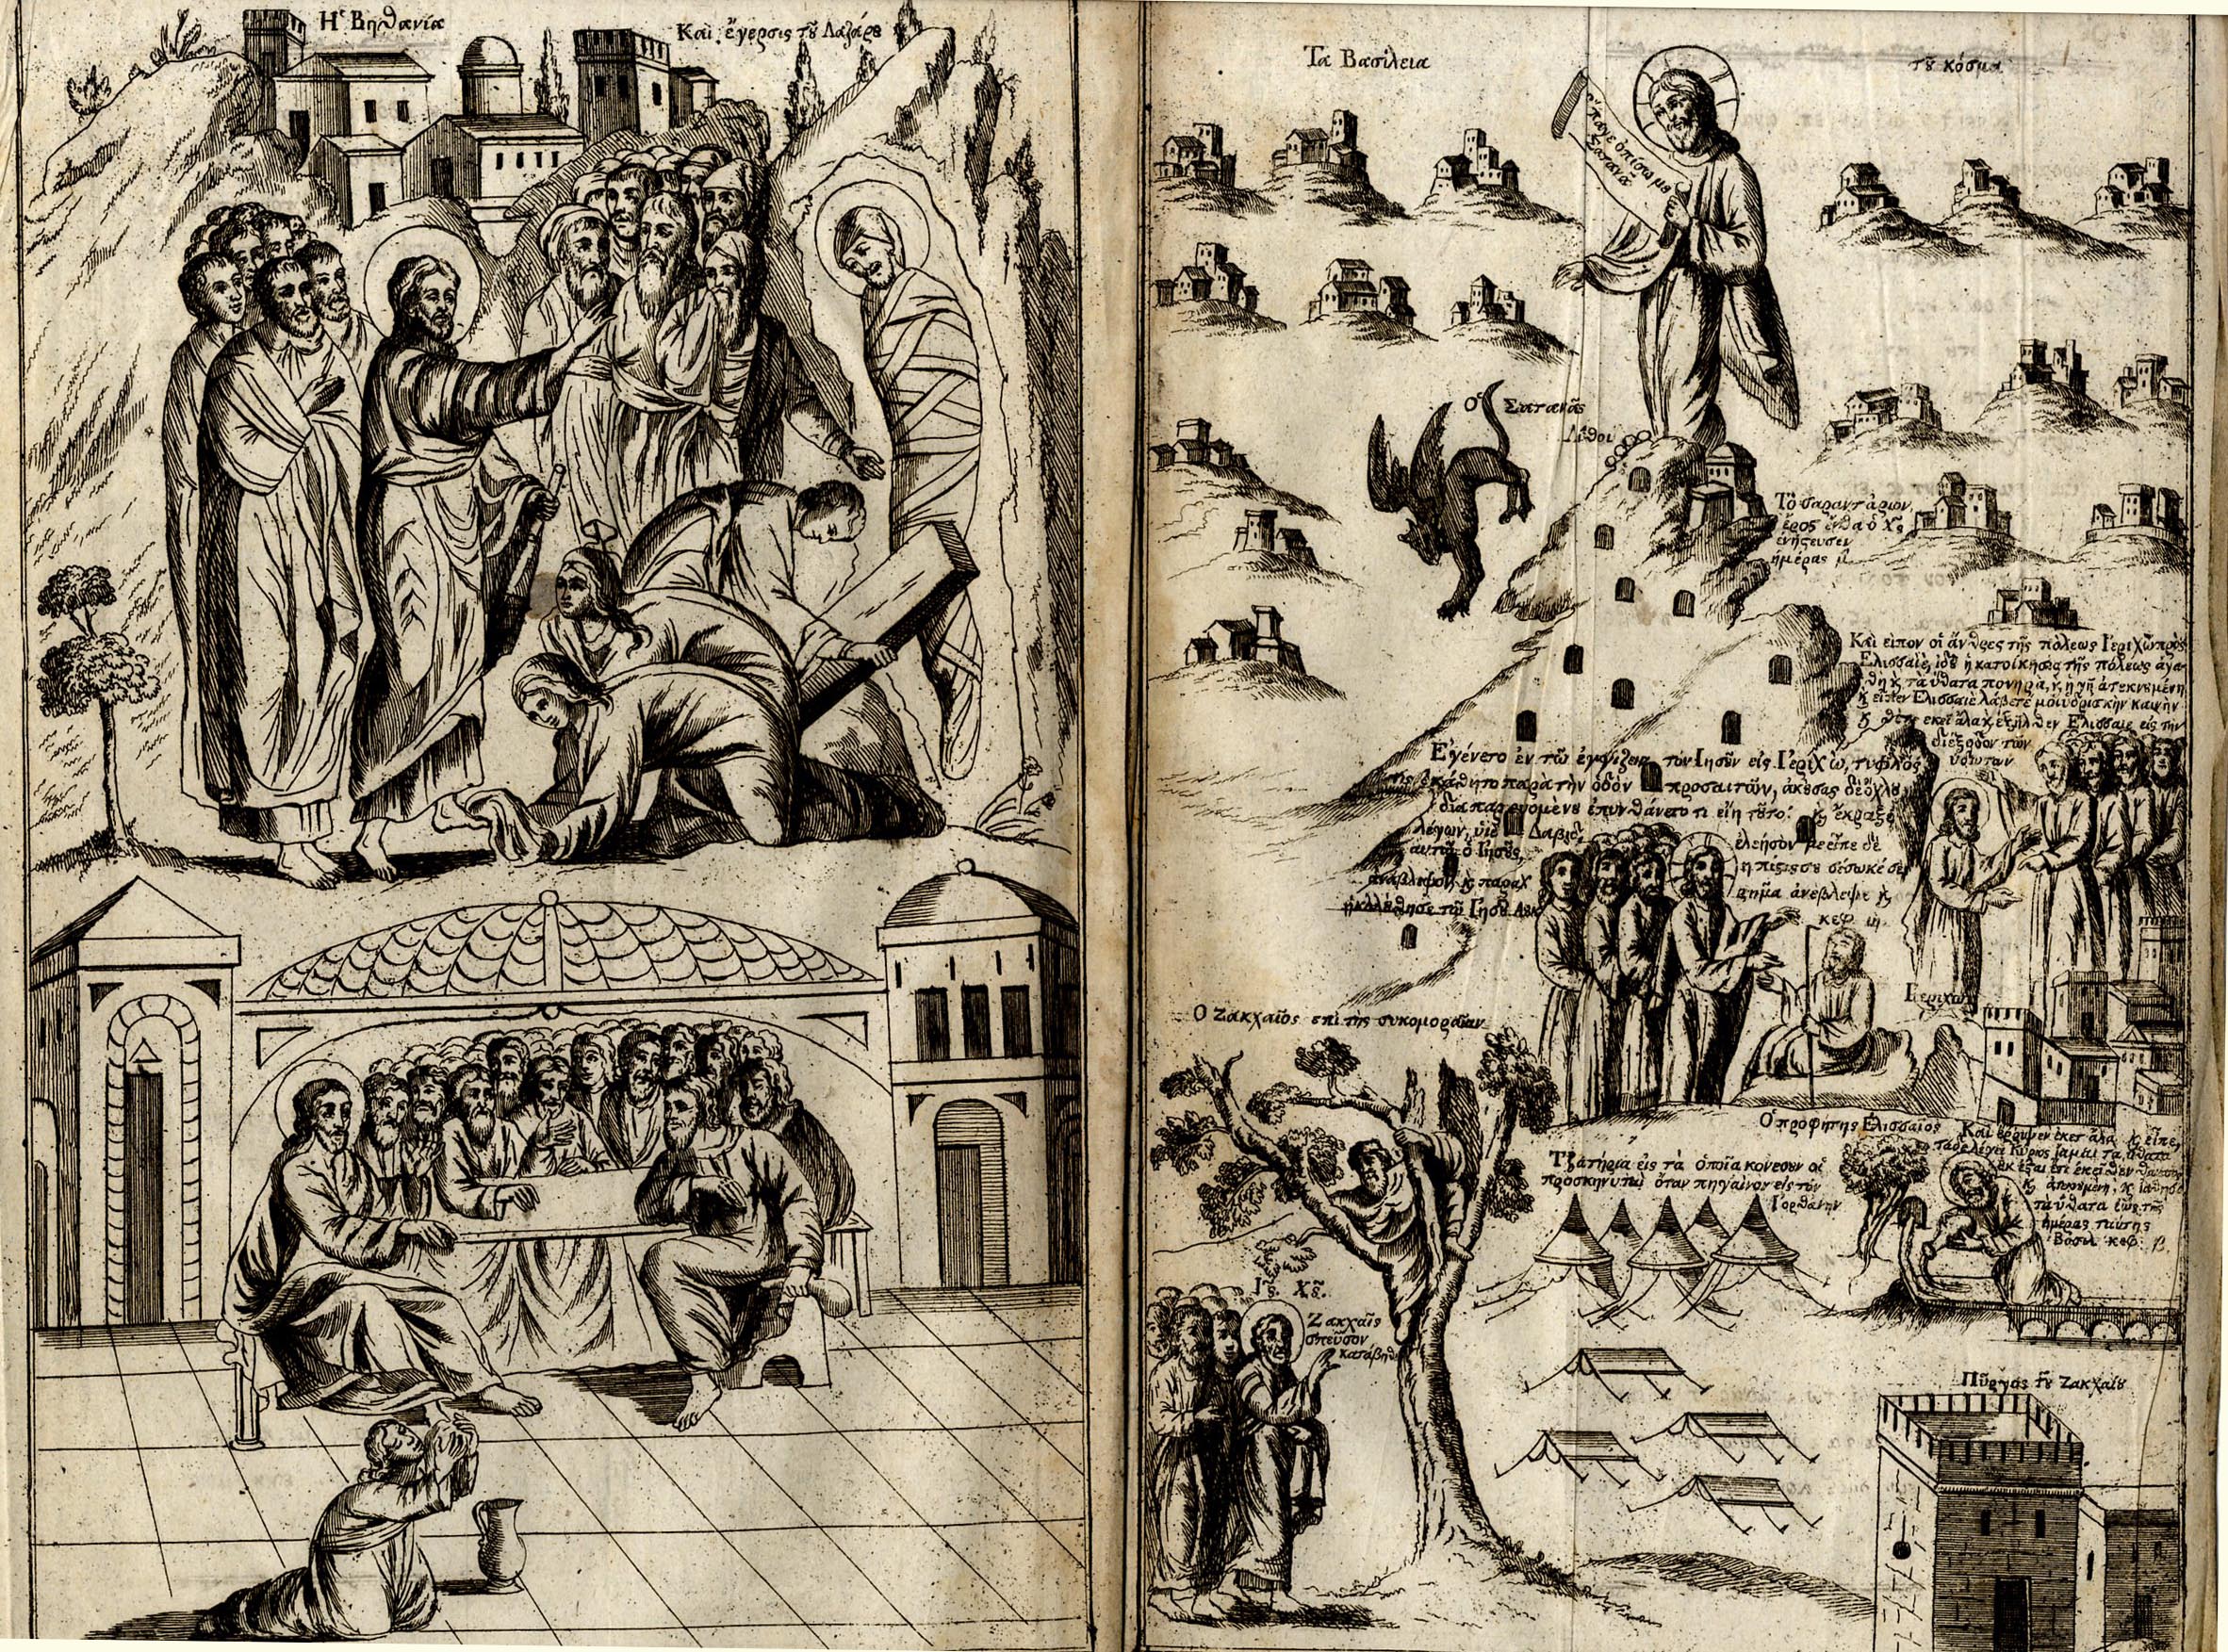 Ἡ Βηθανία
Καὶ ἔγερσις τȣ͂ Λαζάρȣ
Τα Βασίλεια
τȣ͂ κόσμȣ
ὕπαγε ὀπίσω μȣ
Σατανᾶ
Ὁ Σατανᾶς
Λίθοι
Τὸ σαραντάριον
ὄρος ἔνθα ὁ Χς
ἐνήςευσεν
ἡμέρας μ
Καὶ εἶπον οἱ ἄνδρες τῆς πόλεως Ἱεριχὼ πρὸς
Ελισσαιέ, ἰδȣ̀ ἡ κατοίκησις τῆς πόλεως ἀγα
θὴ ϗ τὰ ὕδατα πονηρὰ, ϗ ἡ γῆ ἀτεκνȣμένη
ϗ εἶπεν Ελισσαιὲ λάβετέ μοι ὑδρίσκην καινὴν
ϗ θέτε ἐκεῖ ἅλα ϗ ἐξῆλθεν Ελισσαιὲ εἰς τὴν
διέξοδον τῶν
ὑδάτων
Εγένετο ἐν τῶ ἐγγίζειν τὸν Ιησȣ͂ν εἰς Ἱεριχὼ, τυφλός
τις ἐκάθητο παρὰ τὴν ὁδὸν προσαιτῶν, ἀκȣ́σας δὲ ὄχλȣ
διαπορευομένȣ ἐπυνθάνετο τι εἴη τȣ͂το. ϗ ἔκραξε
λέγων, ὑιὲ Δαβὶδ,
ἐλεήσόν με εἶπε δὲ
αὐτῶ ὁ Ἰησȣ͂ς,
ἡ πίςις σȣ σέσωκέ σε
ἀνάβλεψον, ϗ παραχ
ρῆμα ἀνέβλεψε ϗ
ἠκολȣ́θησε τῶ Ἰησȣ͂ Λȣκ
κεφ ιη.
Ἱεριχὼ
Ο Ζακχαῖος επὶ τῆς συκομοραίαν
Ὁ προφήτης Ελισσαῖος
Καὶ ἔρριψεν ἐκεῖ ἅλα ϗ εἶπε,
ταδε λέγει Κύριος ἴαμαι τὰ ὕδατα
ἐκ ἔςαι ἔτι ἐκεῖθεν θάνατος
ϗ ἀτεκνȣμένη, ϗ ἰάθησαν
τὰ ὕδατα ἕως τῆς
ἡμέρας ταύτης
Βασιλ κεφ. β
Τζατήρια εἰς τὰ ὁποῖα κονεύȣν οἱ
προσκηνυταὶ ὅταν πηγαίνȣν εἰς τὸν
Ἰορδάνην
Ἰς. Χς.
Ζακχαῖε
σπεῦσον
κατάβηθι
Πῦργος τȣ͂ Ζακχαίȣ